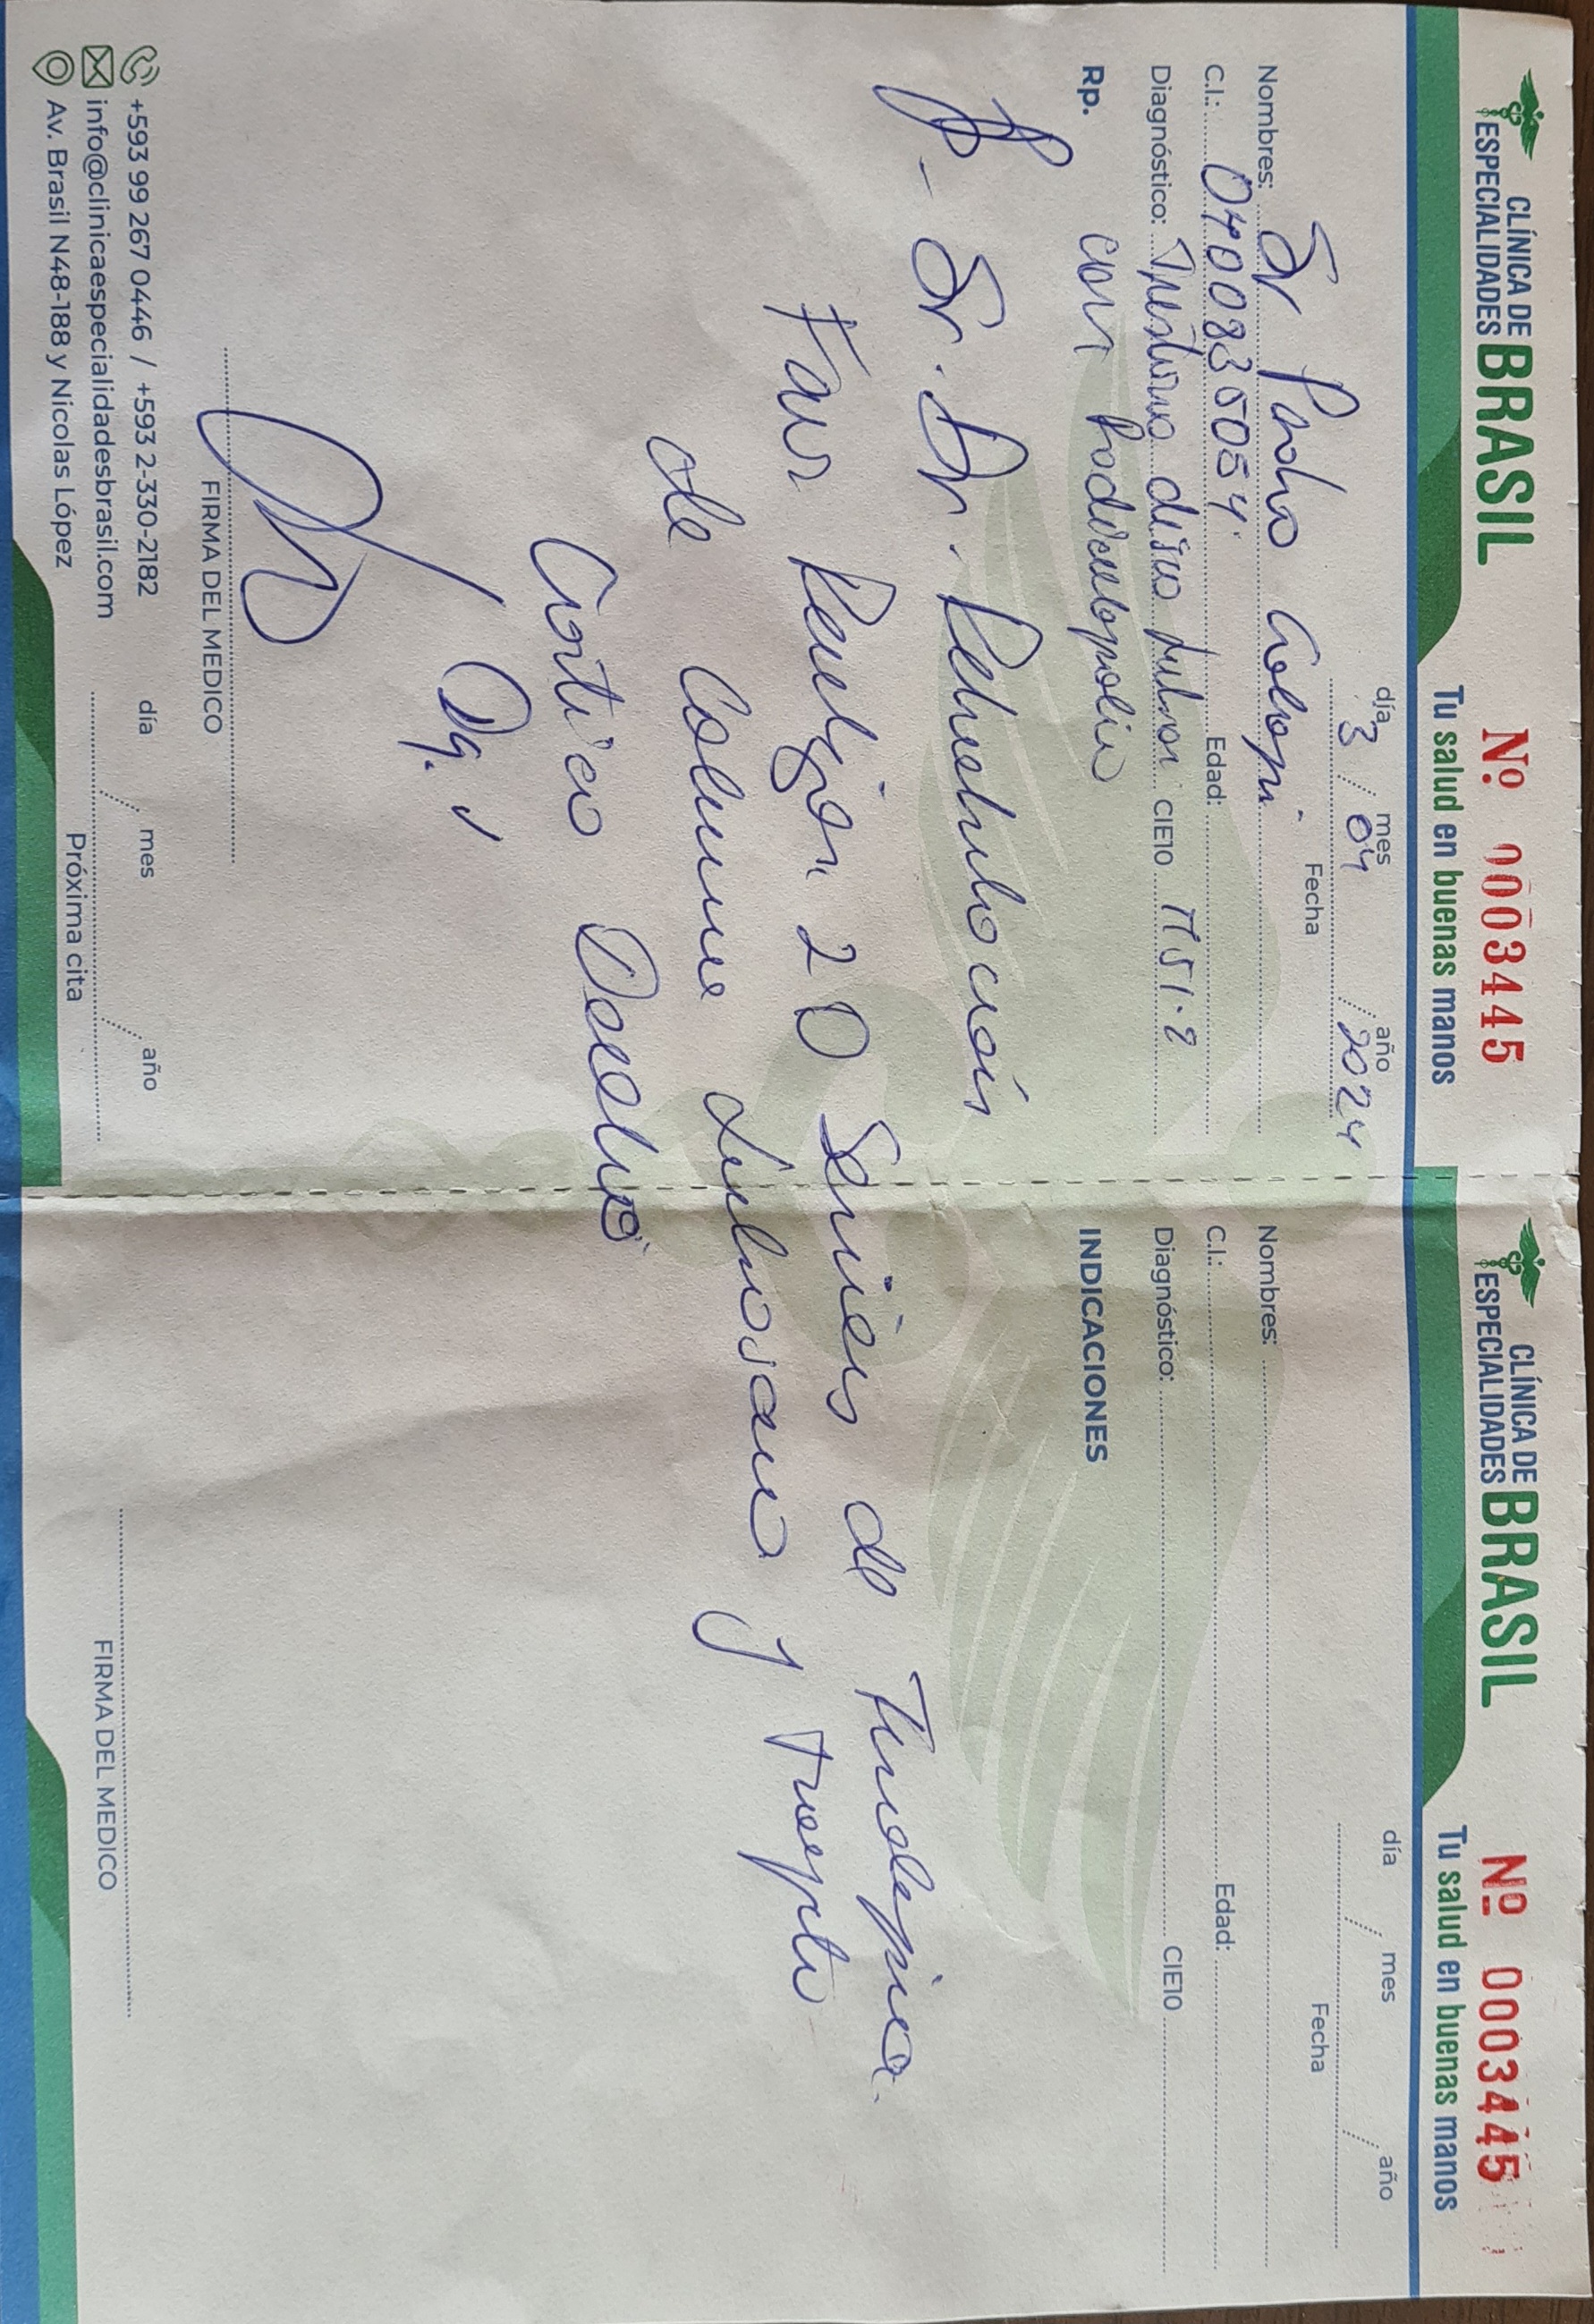 CLÍNICA DE ESPECIALIDADES BRASIL
Nº 0003445
Tu salud en buenas manos
día mes año
3 / 04 / 2024
Fecha
Nombres: Sr Pedro
C.I.: 0400835054 Edad:
Diagnóstico: Trastorno disco lumbar CIE10 M51.2
con Radiculopatía
Rp.
Sr. Dr. Rehabilitación
Favor Realizar 20 Sesiones de Terapia
de Columna Lumbosacra y trayecto
Ciático Derecho
FIRMA DEL MEDICO
+593 99 267 0446 / +593 2-330-2182
info@clinicaespecialidadesbrasil.com
Av. Brasil N48-188 y Nicolas López
día mes año
Próxima cita
CLÍNICA DE ESPECIALIDADES BRASIL
Nº 0003445
Tu salud en buenas manos
día mes año
Fecha
Nombres:
C.I.: Edad:
Diagnóstico: CIE10
INDICACIONES
FIRMA DEL MEDICO